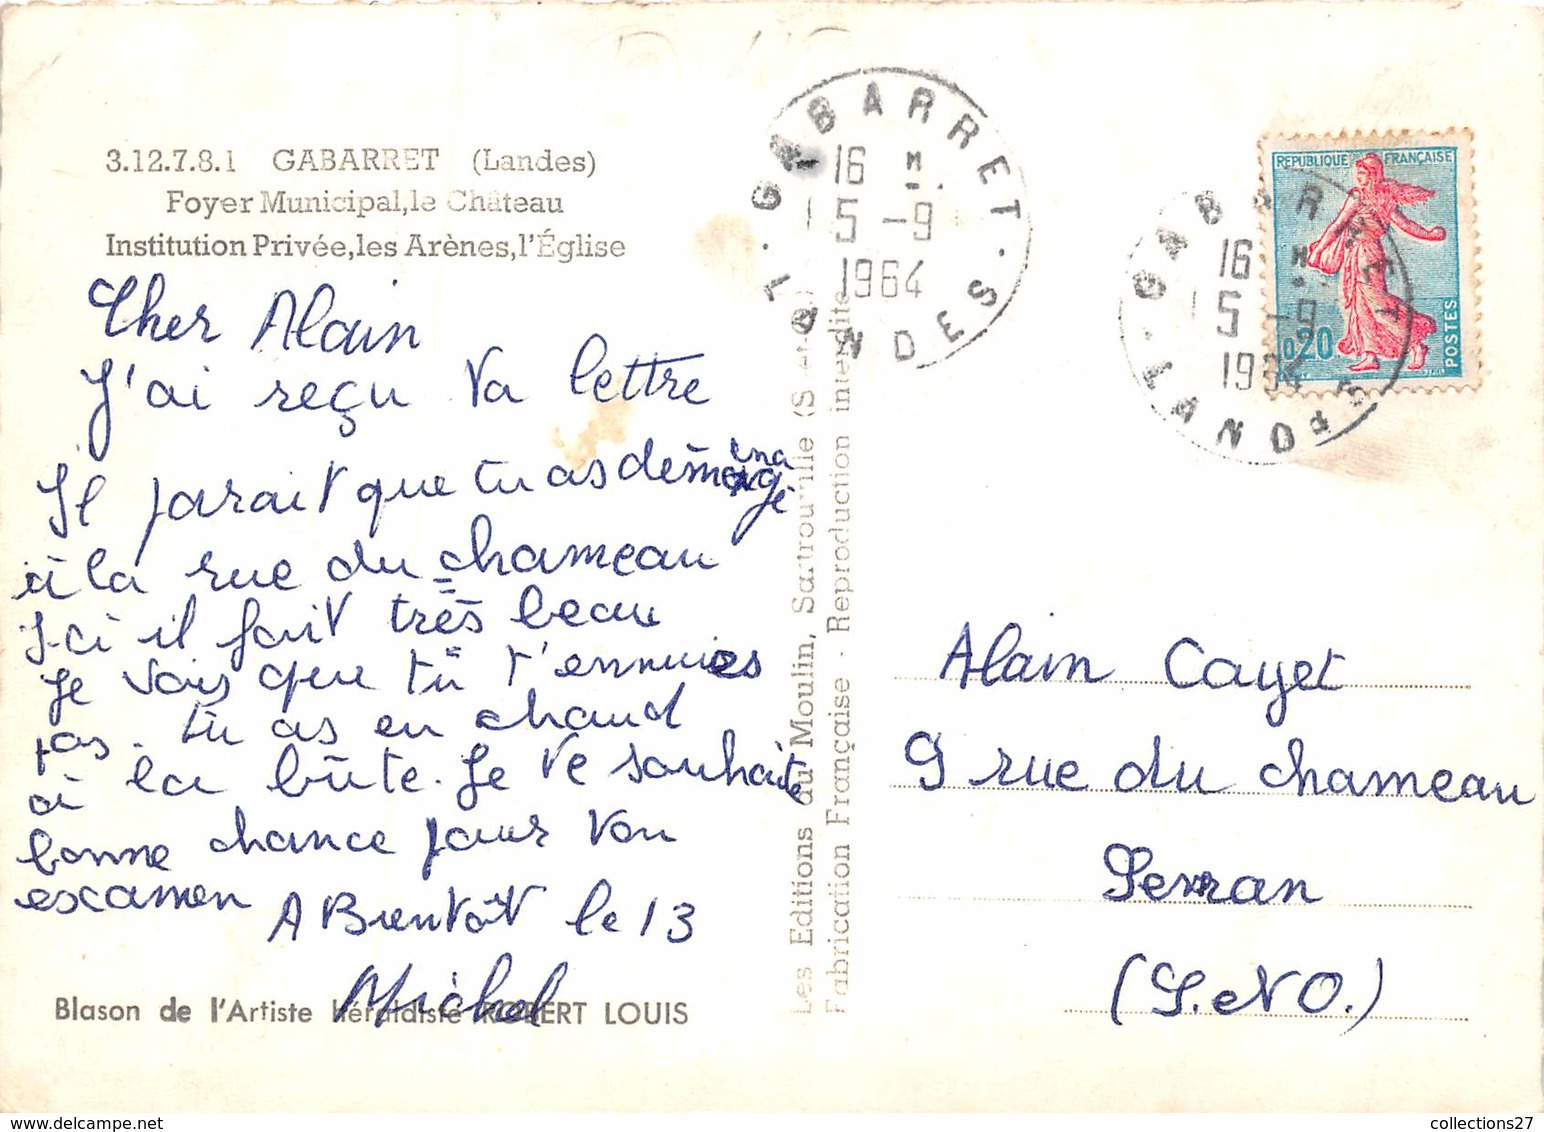 3.12.7.8.1 GABARRET (Landes)
Foyer Municipal, le Château
Institution Privée, les Arènes, l'Église
Cher Alain
J'ai reçu ta lettre
Il parait que tu as déména
gé
à la rue du chameau
I-ci il fait très beau
Je vois que tu t'ennuies
pas. tu as en chaud
à la bûte. Je te souhaite
bonne chance pour ton
examen
A Bientôt le 13
Michel
Blason de l'Artiste Héraldiste ROBERT LOUIS
Les Editions du Moulin, Sartrouville (S.-et-O.)
Fabrication Française - Reproduction interdite
GABARRET
16 H
15 -9
1964
LANDES
REPUBLIQUE FRANÇAISE
0,20
POSTES
GABARRET
16 H
15 -9
1964
LANDES
Alain Cayet
9 rue du chameau
Sevran
(S. et O.)
collections27